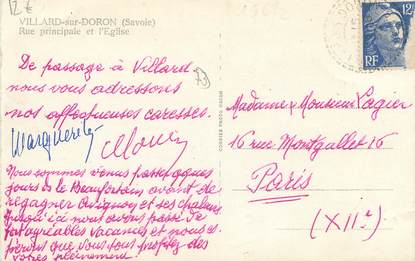 12€
VILLARD-sur-DORON (Savoie)
Rue principale et l'Eglise
12F
RF
De passage à Villard
nous vous adressons
nos affectueuses caresses.
73
Marguerite
Madame & Monsieur Lagier
16 rue Montgallet 16
Paris
(XIIe)
Nous sommes venus passer
jours de Beaufortain avant de
regagner Avignon et ses chaleurs
Jusqu'ici nous avons passé de
agréables vacances et nous es-
pérons que vous tous profitez des
vôtres pleinement!